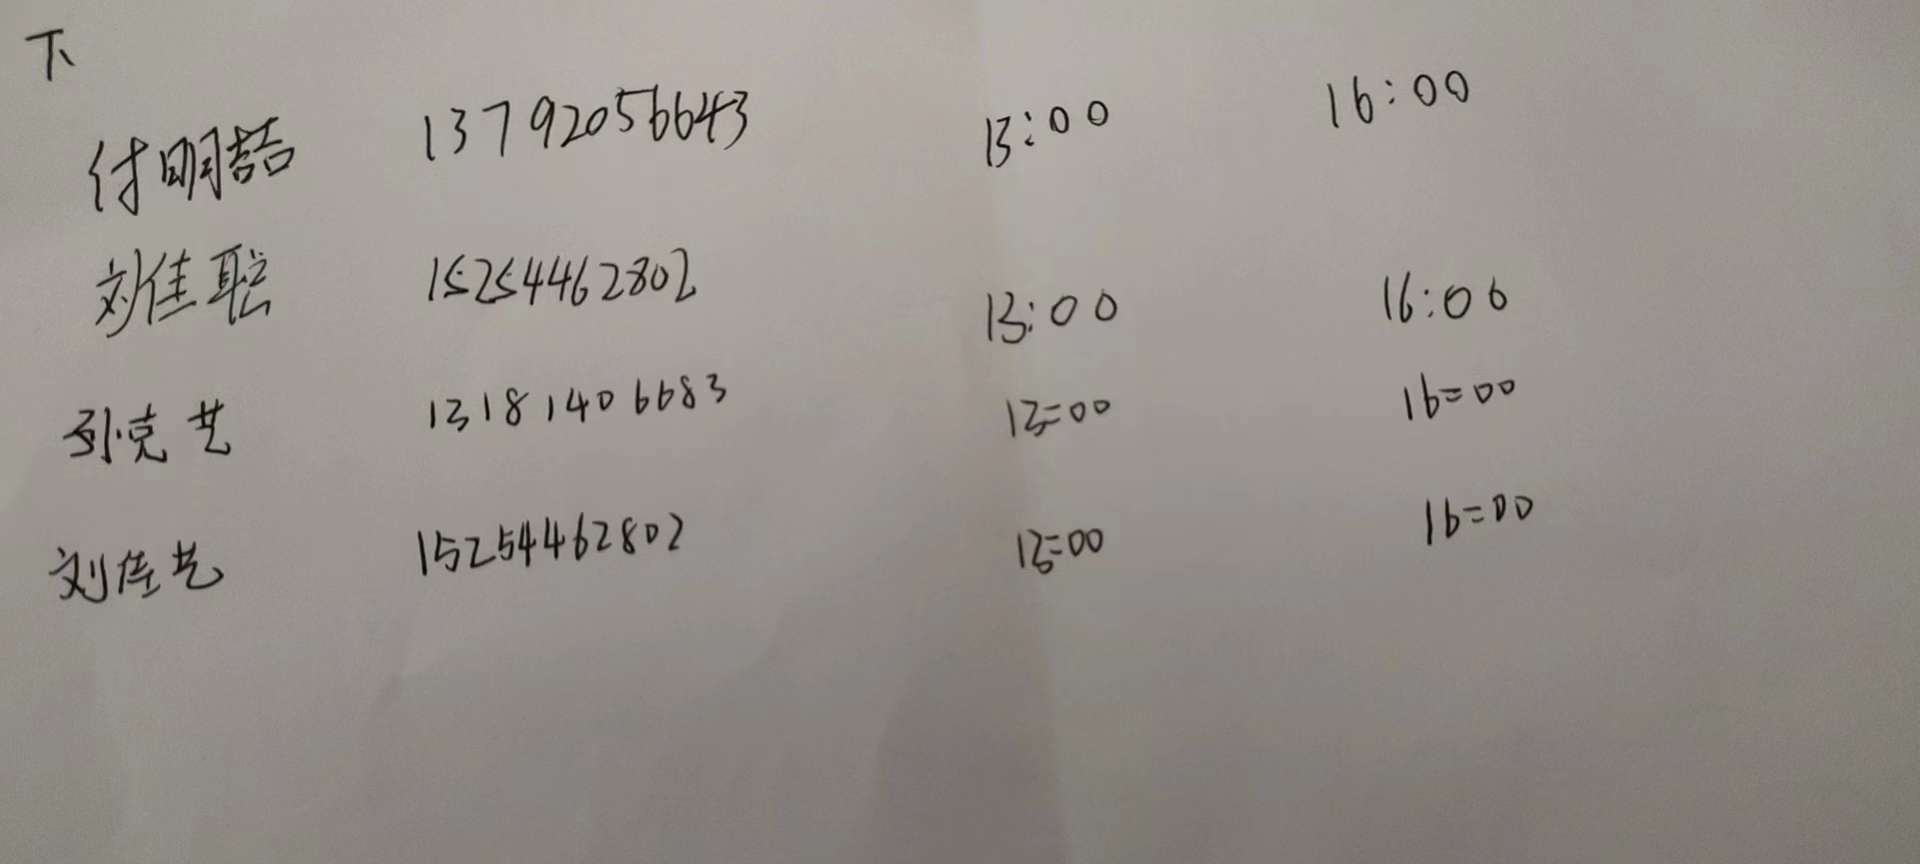 下
付明喆 13792056643 13:00 16:00
刘佳聪 15254462802 13:00 16:00
孙克艺 13181406683 13=00 16=00
刘佳艺 15254462802 13=00 16=00